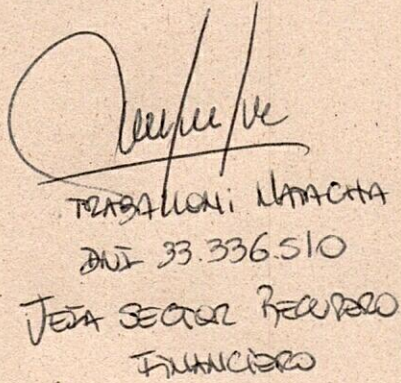 TRABALLONI NATACHA
DNI 33.336.510
JEFA SECTOR RECUPERO
FINANCIERO